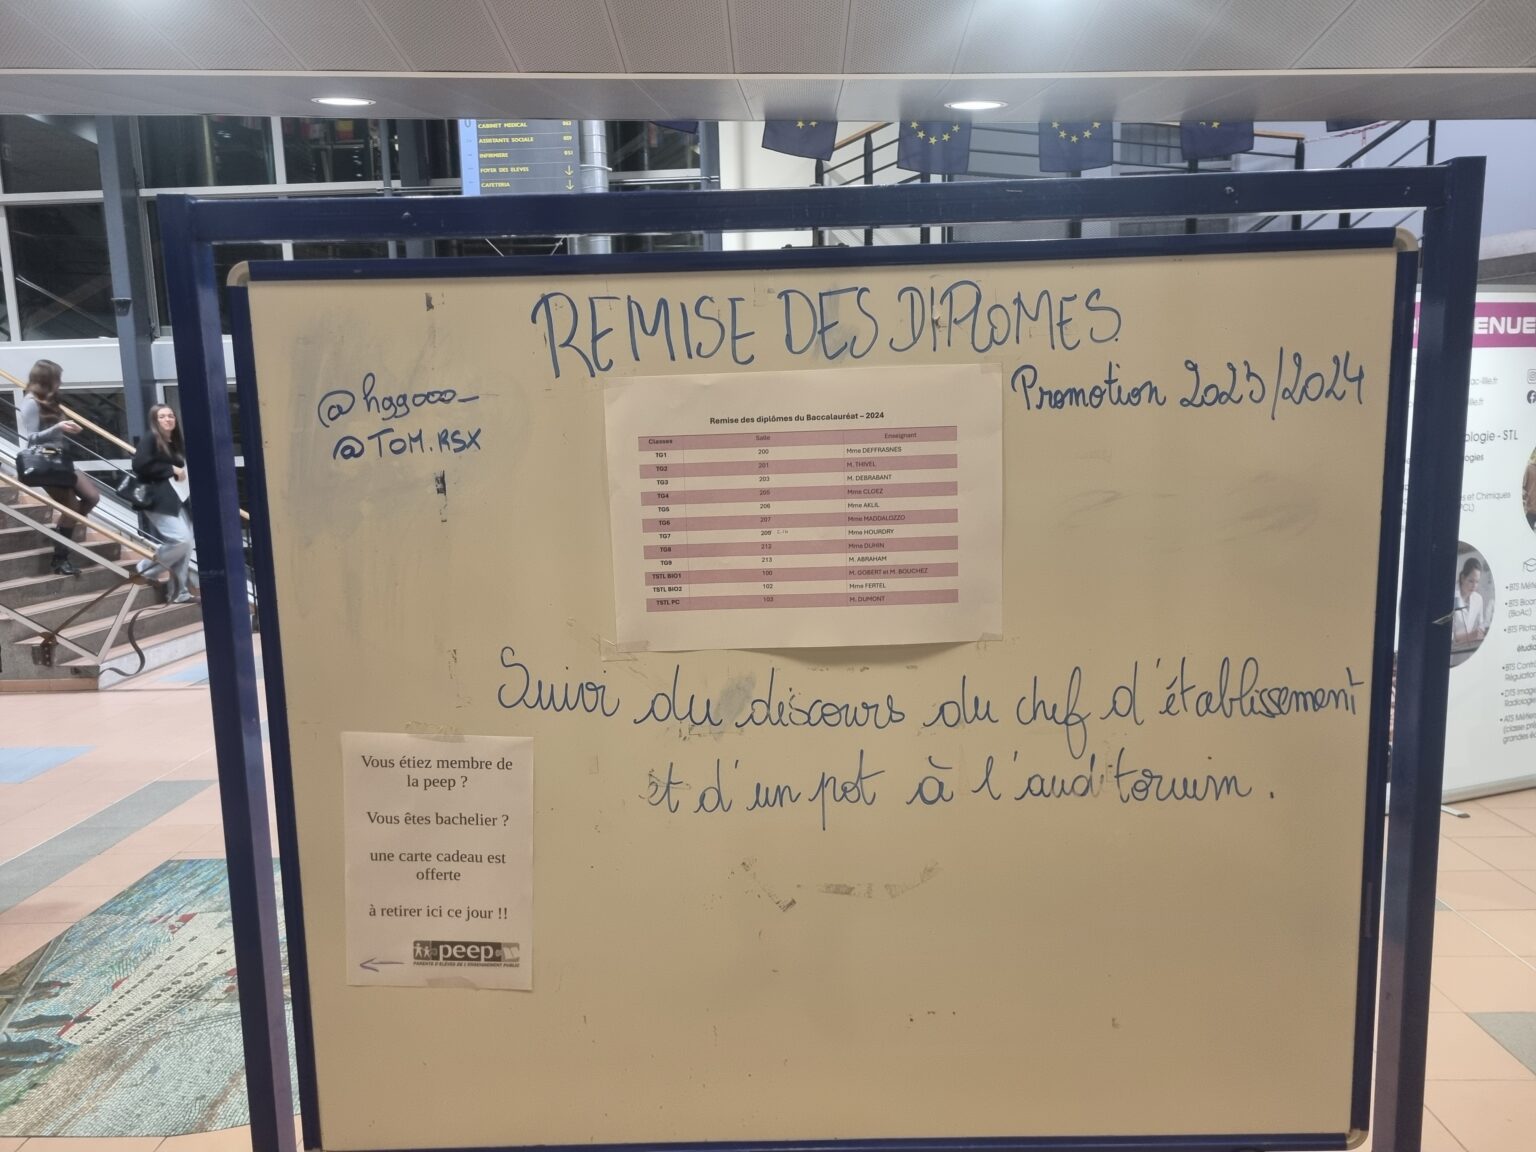 CABINET MEDICAL
ASSISTANTE SOCIALE
INFIRMIERE
FOYER DES ELEVES
CAFETERIA
REMISE DES DIPLOMES
Promotion 2023/2024
@hggooo_
@TOM.RSX
Remise des diplômes du Baccalauréat – 2024
Classes Salle Enseignant
TG1 200 Mme DEFFRASNES
TG2 201 M. THIVEL
TG3 203 M. DEBRABANT
TG4 205 Mme CLOEZ
TG5 206 Mme AKLIL
TG6 207 Mme MADDALOZZO
TG7 209 Mme HOURDRY
TG8 212 Mme DUHIN
TG9 213 M. ABRAHAM
TSTL BIO1 100 M. GOBERT et M. BOUCHEZ
TSTL BIO2 102 Mme FERTEL
TSTL PC 103 M. DUMONT
Suivi du discours du chef d'établissement
et d'un pot à l'auditorium.
Vous étiez membre de
la peep ?
Vous êtes bachelier ?
une carte cadeau est
offerte
à retirer ici ce jour !!
peep
PARENTS D'ÉLÈVES DE L'ENSEIGNEMENT PUBLIC
ENUE
ologie - STL
ologies
es et Chimiques
PCL)
• BTS Méti
• BTS Bioan
(BioAc)
• BTS Pilota
étudia
• BTS Contrô
Régulation
• DTS Imager
Radiologie
• ATS Métier
(classe pré
grandes éc